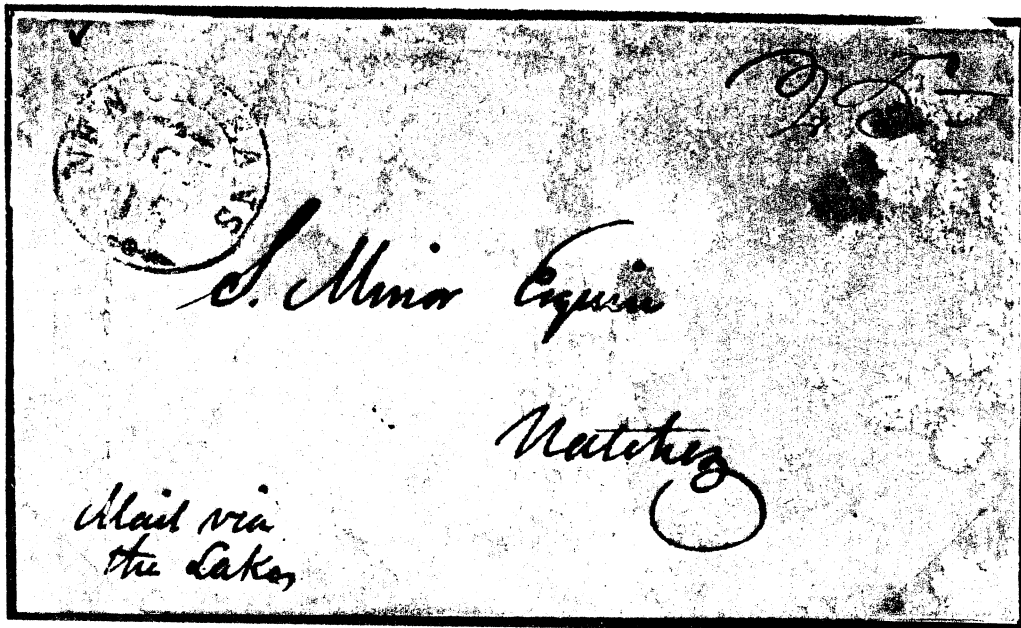 NEW ORLEANS
OCT
15
S. Minor Esquire
Natchez
Mail via
the Lakes